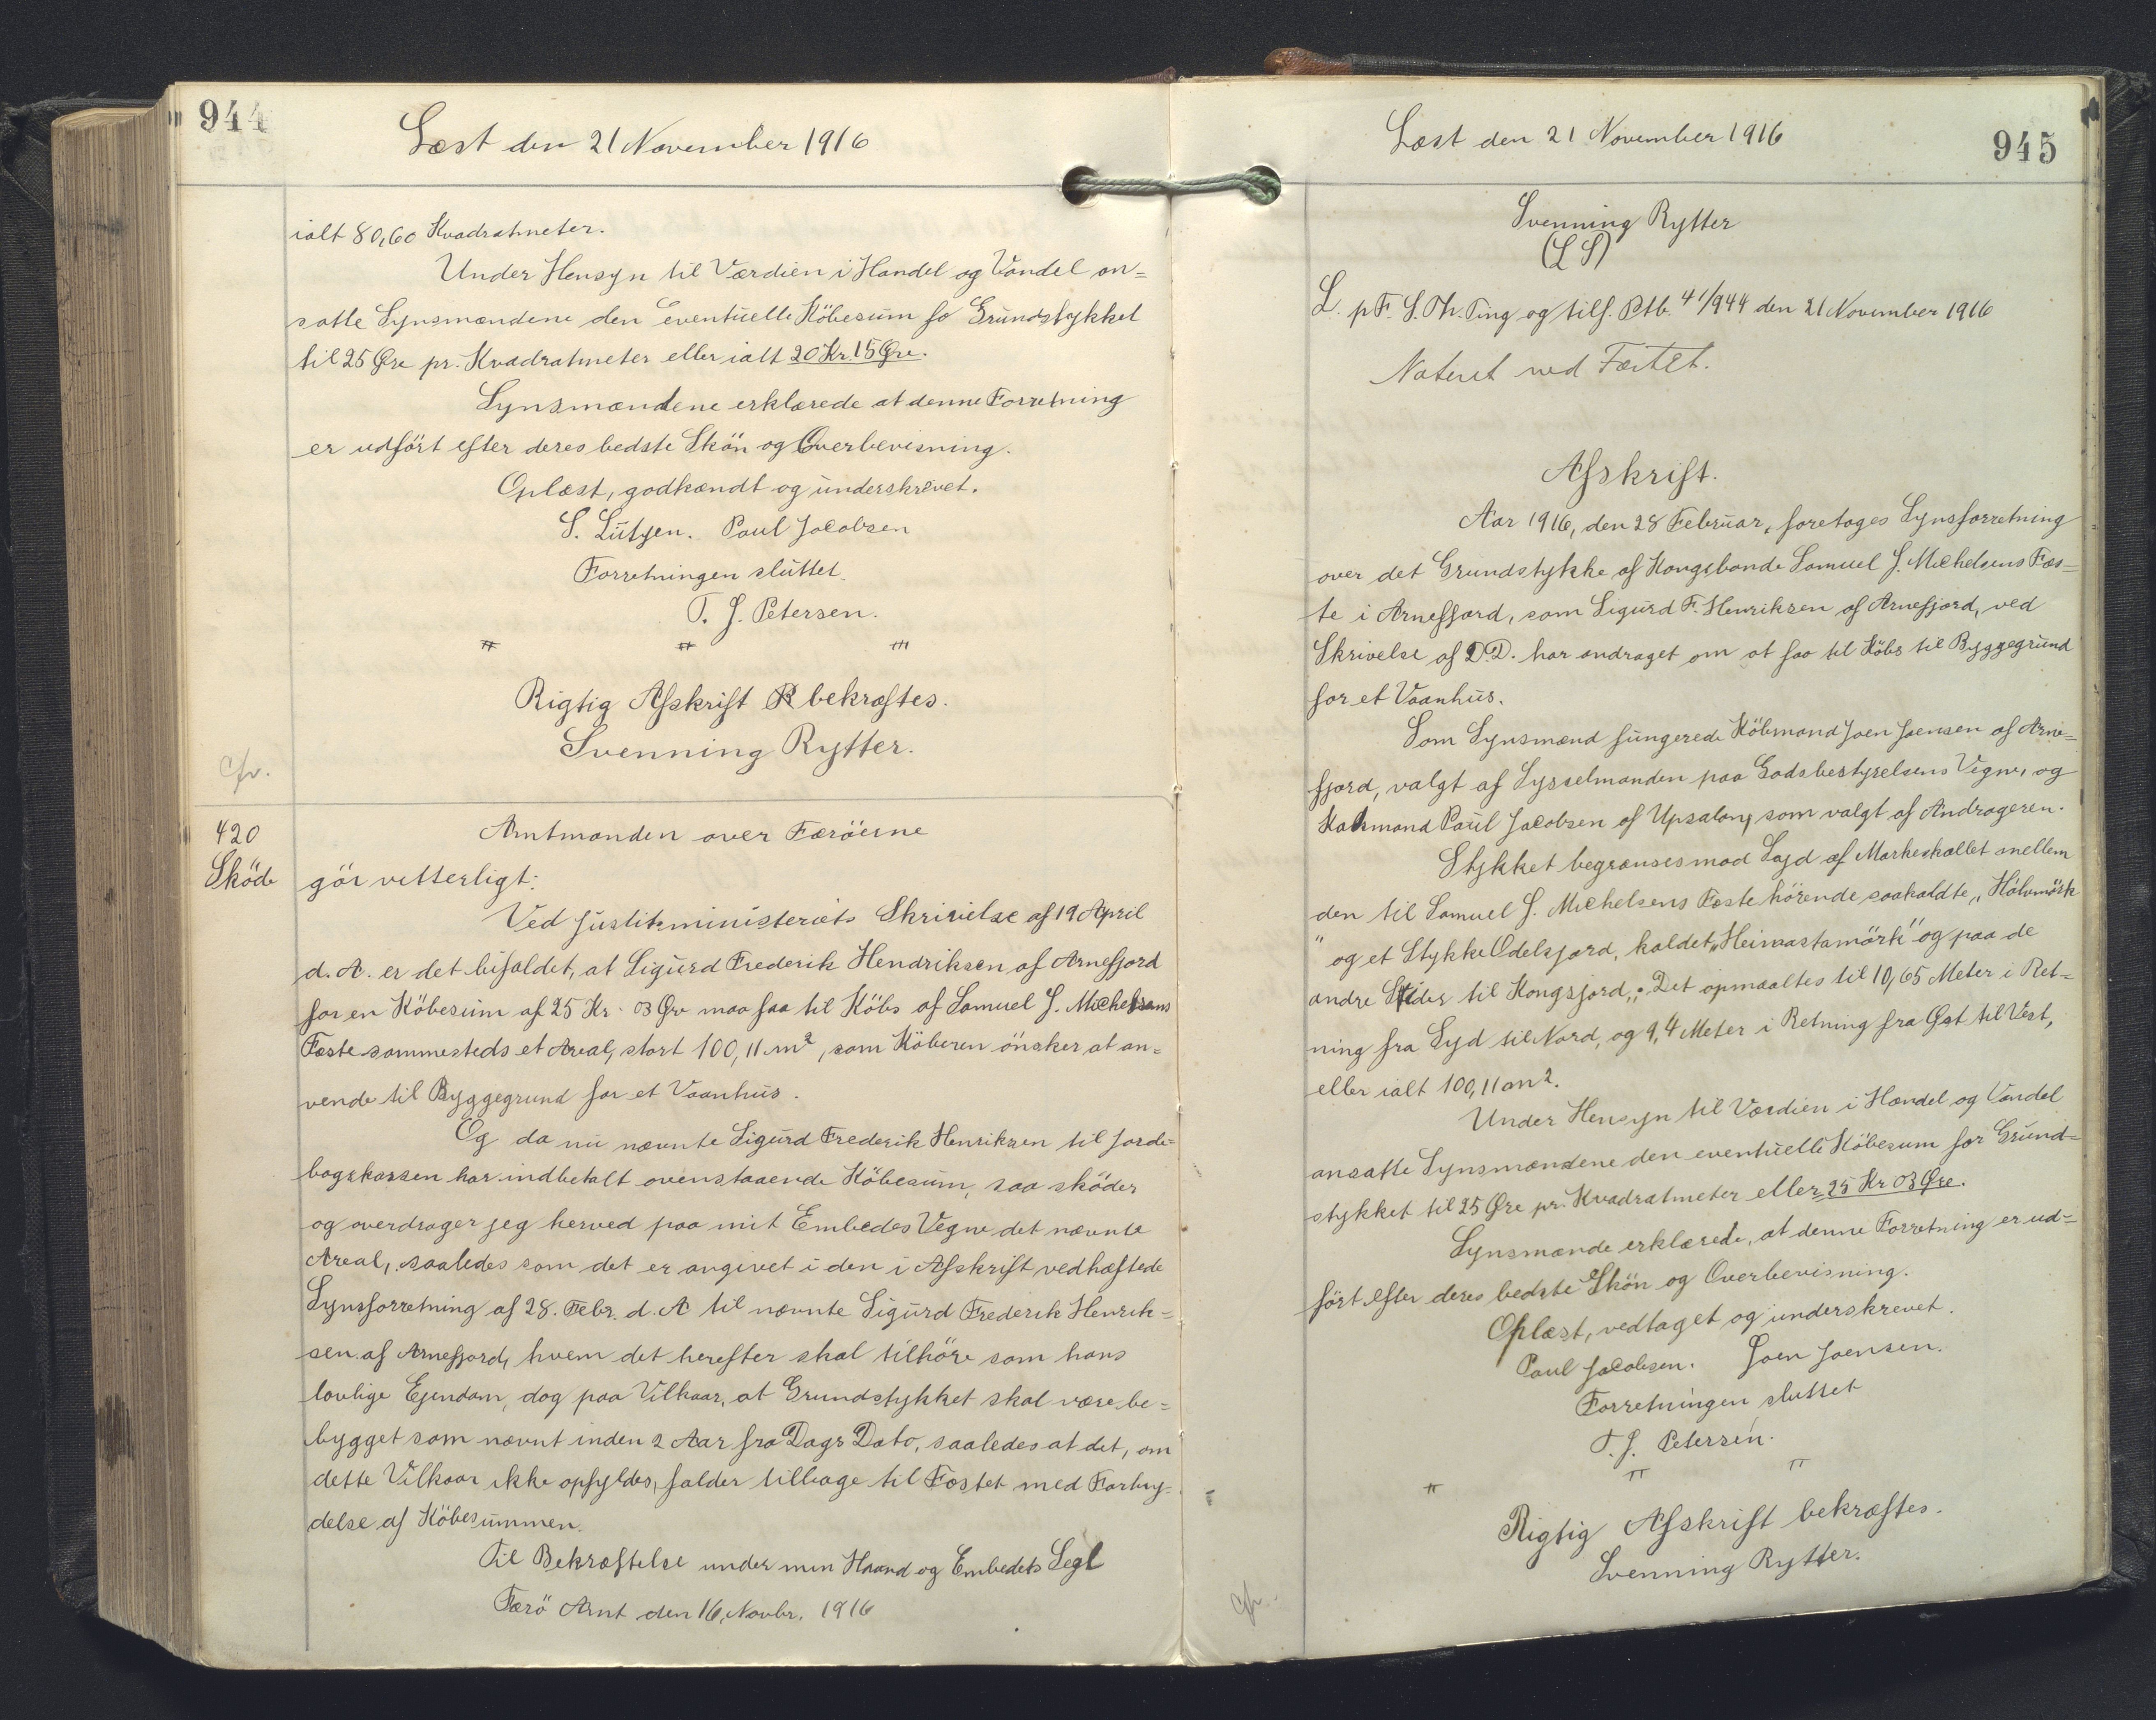 944
Læst den 21 November 1916
ialt 80,60 Kvadratmeter.
Under Hensyn til Værdien i Handel og Vandel an=
satte Synsmændene den eventuelle Köbesum fo Grundstykket
til 25 Øre pr. Kvadratmeter eller ialt 20 Kr. 15 Øre.
Synsmændene erklærede at denne Forretning
er udfört efter deres bedste Skön og Overbevisning.
Oplæst, godkændt og underskrevet.
S. Lützen. Paul Jacobsen
Forretningen sluttet.
T. J. Petersen.
Rigtig Afskrift bekræftes.
Svenning Rytter.
cfr.
420
Sköde
Amtmanden over Færöerne
gör vitterligt:
Ved Justitsministeriets Skrivelse af 19 April
d. A. er det bifaldet, at Sigurd Frederik Hendriksen af Arnefjord
for en Köbesum af 25 Kr. 03 Øre maa faa til Köbs af Samuel J. Michelsens
Fæste sammesteds et Areal, stort 100,11 m², som Köberen önsker at an=
vende til Byggegrund for et Vaanhus.
Og da nu nævnte Sigurd Frederik Henriksen til Jorde=
bogskassen har indbetalt ovenstaaende Köbesum, saa sköder
og overdrager jeg herved paa mit Embedes Vegne det nævnte
Areal, saaledes som det er angivet i den i Afskrift vedhæftede
Synsforretning af 28. Febr. d. A til nævnte Sigurd Frederik Henrik=
sen af Arnefjord, hvem det herefter skal tilhöre som hans
lovlige Ejendom, dog paa Vilkaar, at Grundstykket skal være be=
bygget som nævnt inden 2 Aar fra Dags Dato, saaledes at det, om
dette Vilkaar ikke opfyldes, falder tilbage til Fæstet med Forbry-
delse af Köbesummen.
Til Bekræftelse under min Haand og Embedets Segl
Færö Amt den 16. Novbr. 1916
Læst den 21 November 1916
945
Svenning Rytter
(L S)
L. p F. S. Th. Ting og tilf. Ptb. 41/944 den 21 November 1916
Noteret ved Fæstet.
Afskrift.
Aar 1916, den 28 Februar, foretoges Synsforretning
over det Grundstykke af Kongsbonde Samuel J. Michelsens Fæs=
te i Arnefjord, som Sigurd F. Henriksen af Arnefjord, ved
Skrivelse af D.D. har andraget om at faa til Köbs til Byggegrund
for et Vaanhus.
Som Synsmænd fungerede Köbmand Joen Joensen af Arne=
fjord, valgt af Sysselmanden paa Godsbestyrelsens Vegne, og
Kakmand Paul Jacobsen af Upsalong som valgt af Andrageren.
Stykket begrænses mod Syd af Markeskællet mellem
den til Samuel J. Michelsens Fæste hörende saakaldte „Hálvmörk
" og et Stykke Odelsjord, kaldet „Heimastamörk" og paa de
andre Sider til Kongsjord„. Det opmaaltes til 10,65 Meter i Ret=
ning fra Syd til Nord, og 9,4 Meter i Retning fra Øst til Vest,
eller ialt 100,11 m2.
Under Hensyn til Værdien i Handel og Vandel
ansatte Synsmændene den eventuelle Köbesum for Grund=
stykket til 25 Øre pr. Kvadratmeter eller 25 Kr 03 Øre.
Synsmænde erklærede, at denne Forretning er ud=
fört efter deres bedste Skön og Overbevisning.
Oplæst, vedtaget og underskrevet.
Paul Jacobsen. Joen Joensen.
Forretningen sluttet
T. J. Petersen.
Rigtig Afskrift bekræftes.
Svenning Rytter.
cfr.